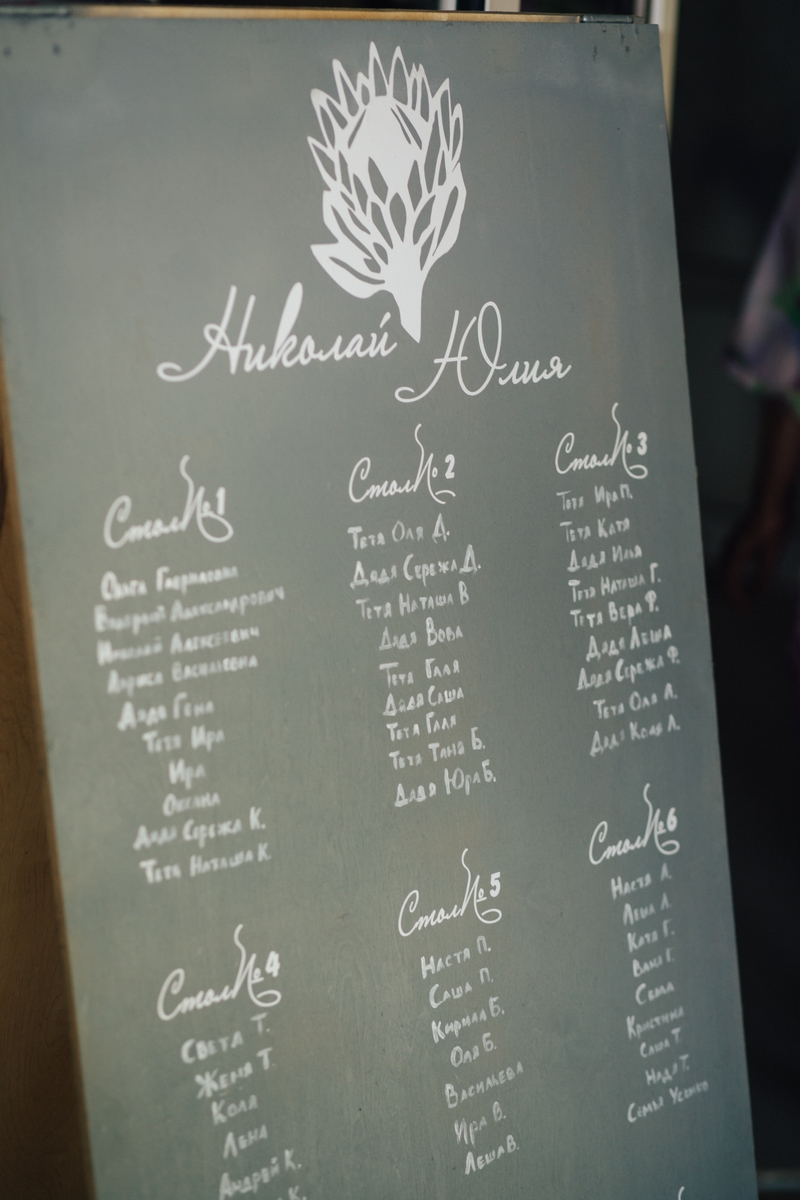 Николай Юлия
Стол №1
Ольга Гавриловна
Валерий Александрович
Николай Алексеевич
Лариса Васильевна
Дядя Гена
Тетя Ира
Ира
Оксана
Дядя Сережа К.
Тетя Наташа К.
Стол №2
Тетя Оля Д.
Дядя Сережа Д.
Тетя Наташа В
Дядя Вова
Тетя Галя
Дядя Саша
Тетя Галя
Тетя Таня Б.
Дядя Юра Б.
Стол №3
Тетя Ира П.
Тетя Катя
Дядя Илья
Тетя Наташа Г.
Тетя Вера Ф.
Дядя Леша
Дядя Сережа Ф.
Тетя Оля Л.
Дядя Коля Л.
Стол №4
Света Т.
Женя Т.
Коля
Лена
Андрей К.
К.
Стол №5
Настя П.
Саша П.
Кирилл Б.
Оля Б.
Васильева
Ира В.
Леша В.
Стол №6
Настя Л.
Леша Л.
Катя Г.
Ваня Г.
Сёма
Кристина
Саша Т.
Надя Т.
Семья Усенко